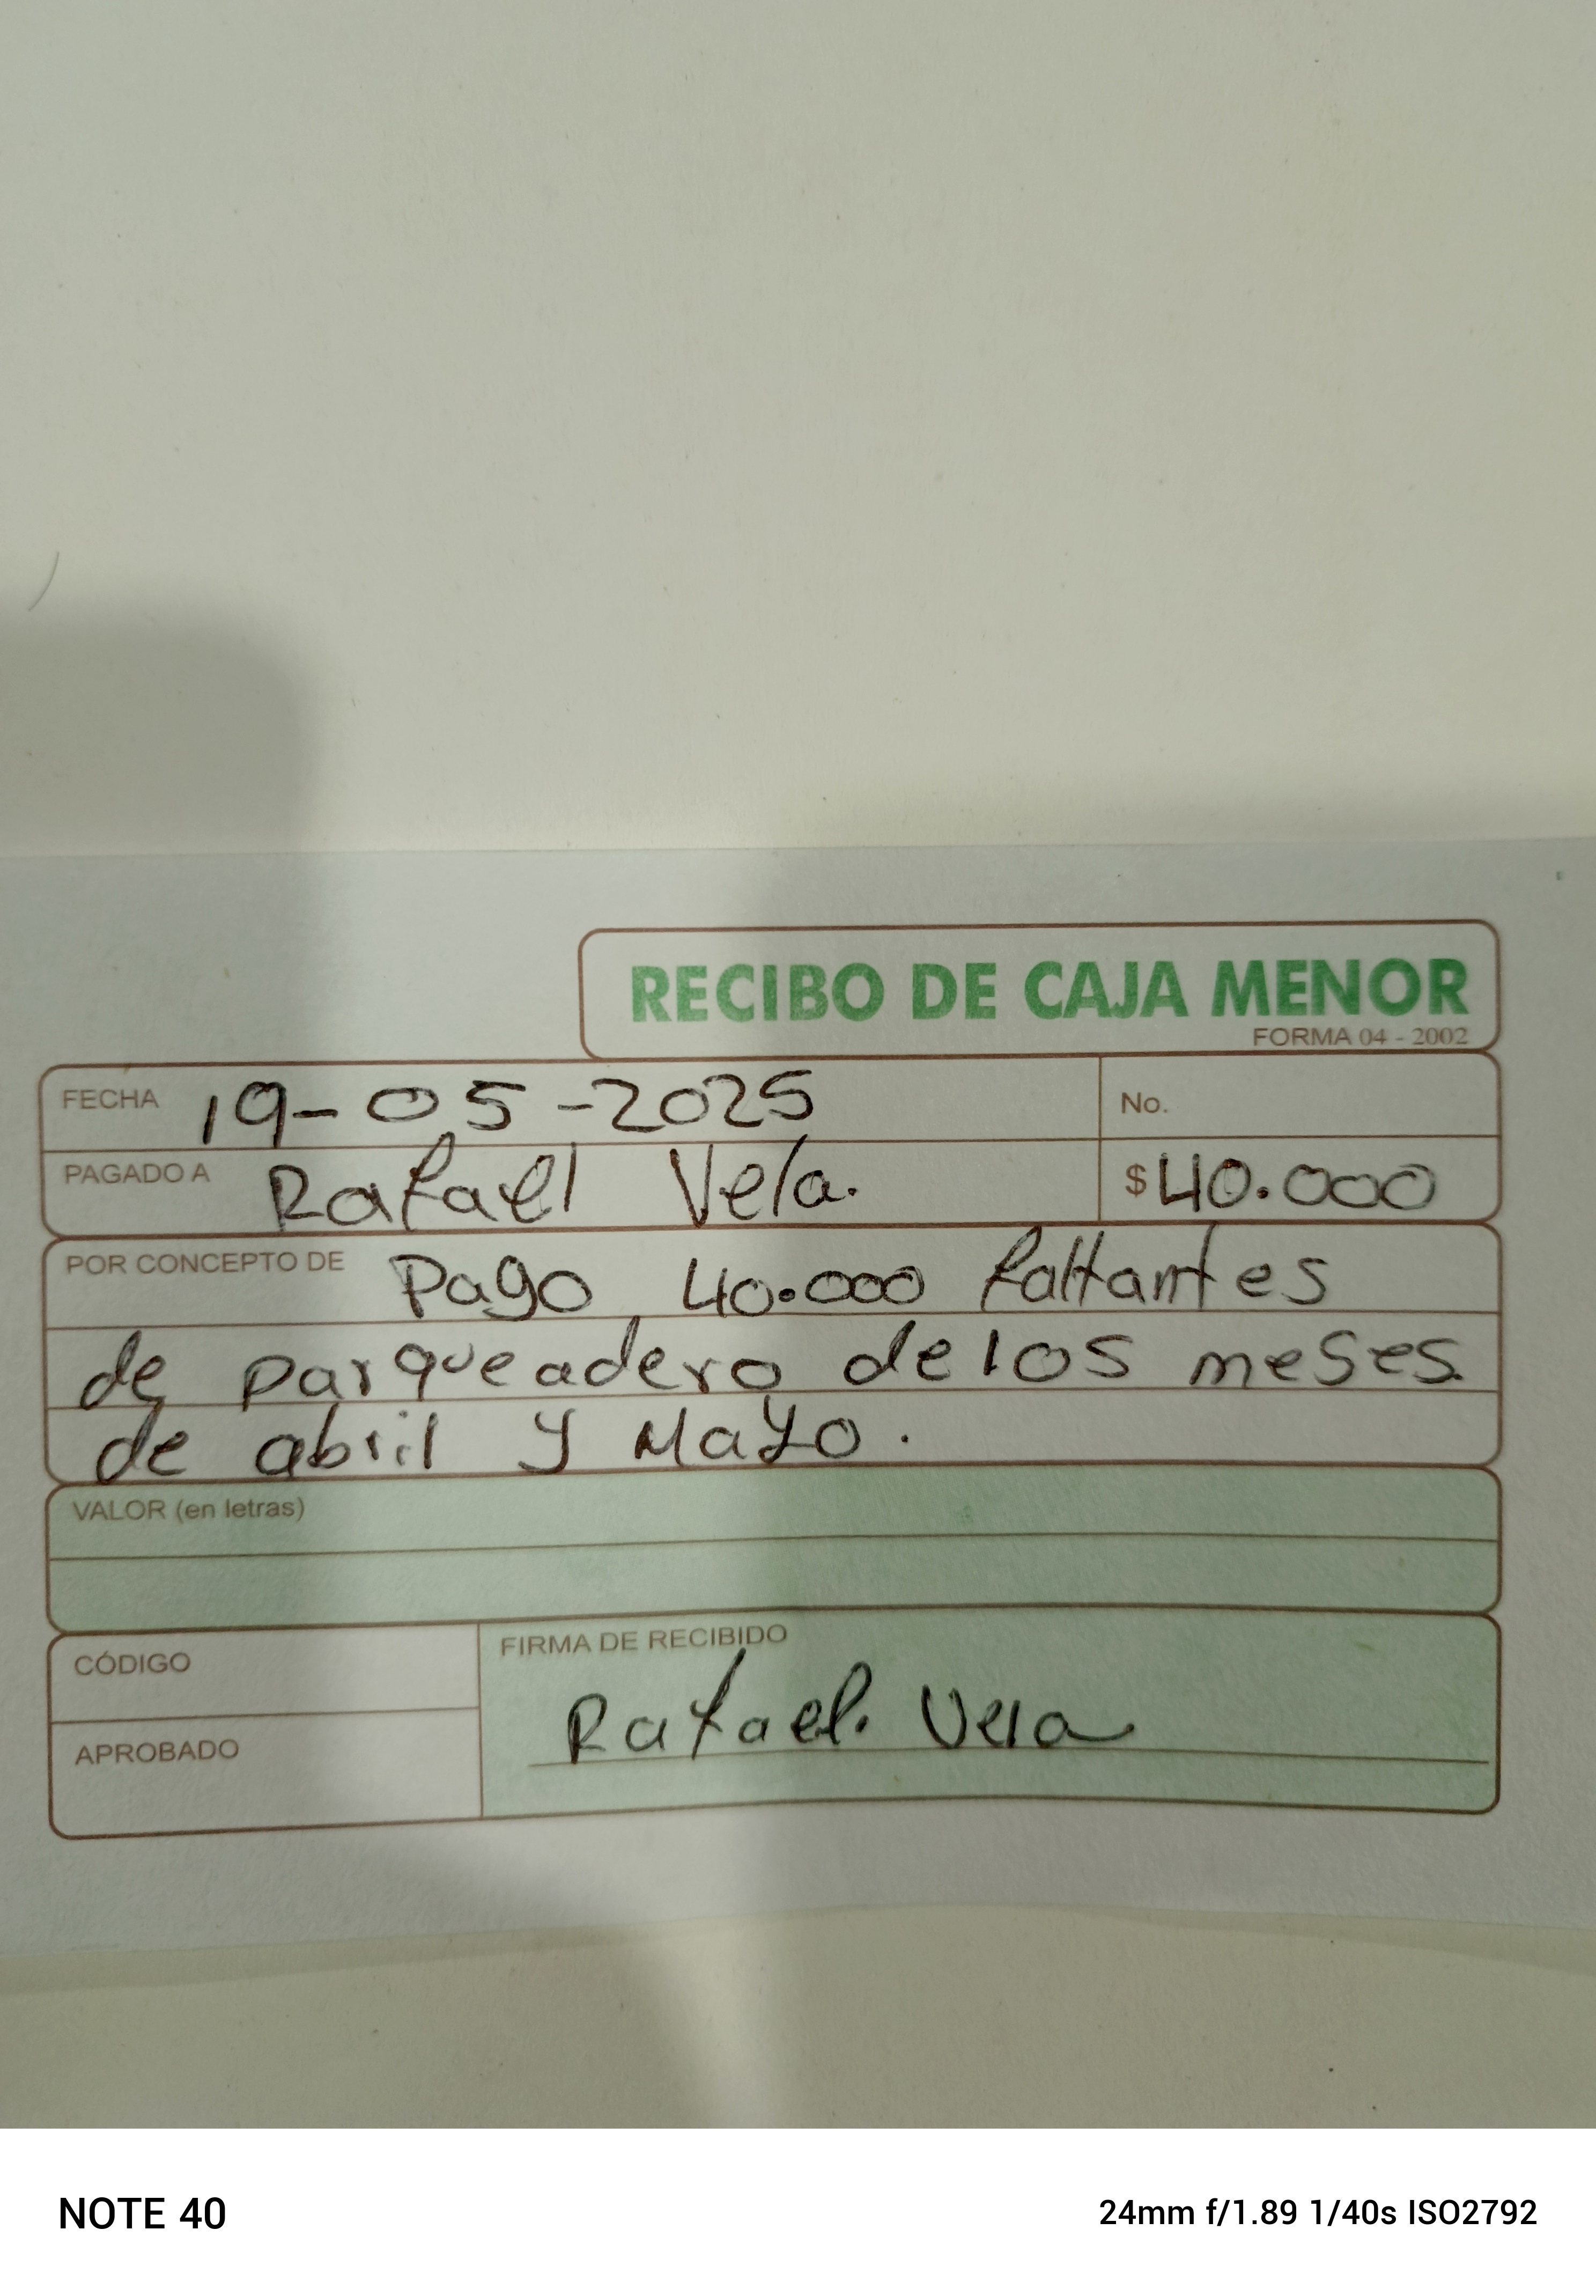 RECIBO DE CAJA MENOR
FORMA 04 - 2002
FECHA 19-05-2025 No.
PAGADO A Rafael Vela. $ 40.000
POR CONCEPTO DE Pago 40.000 faltantes
de parqueadero de los meses.
de abril y Mayo.
VALOR (en letras)
CÓDIGO
FIRMA DE RECIBIDO
Rafael. Vela
APROBADO
NOTE 40 24mm f/1.89 1/40s ISO2792